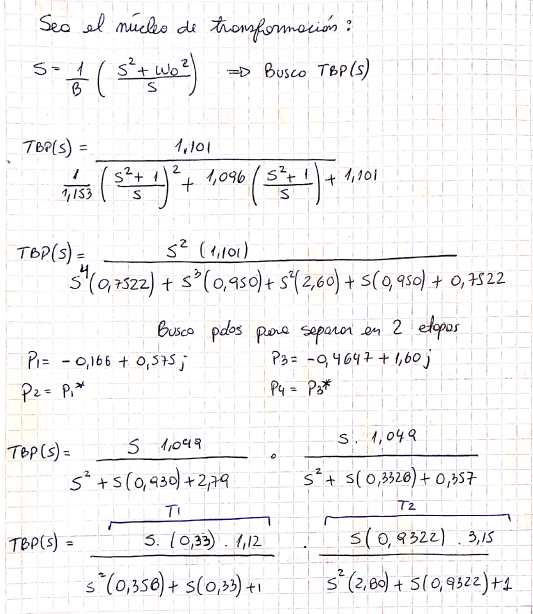 Sea el núcleo de transformación:
S = 1/B ( (S² + ω0²)/S ) => Busco TBP(S)
TBP(S) = 1,101 / ( 1/1,153 ( (S² + 1)/S )² + 1,096 ( (S² + 1)/S ) + 1,101 )
TBP(S) = S² (1,101) / ( S⁴(0,7522) + S³(0,950) + S²(2,60) + S(0,950) + 0,7522 )
Busco polos para separar en 2 etapas
P1 = -0,166 + 0,575j P3 = -0,4647 + 1,60j
P2 = P1* P4 = P3*
TBP(S) = S 1,049 / ( S² + S(0,930) + 2,79 ) · S. 1,049 / ( S² + S(0,3328) + 0,357 )
T1 T2
TBP(S) = S. (0,33) . 1,12 / ( S²(0,358) + S(0,33) + 1 ) . S(0,9322) . 3,15 / ( S²(2,80) + S(0,9322) + 1 )